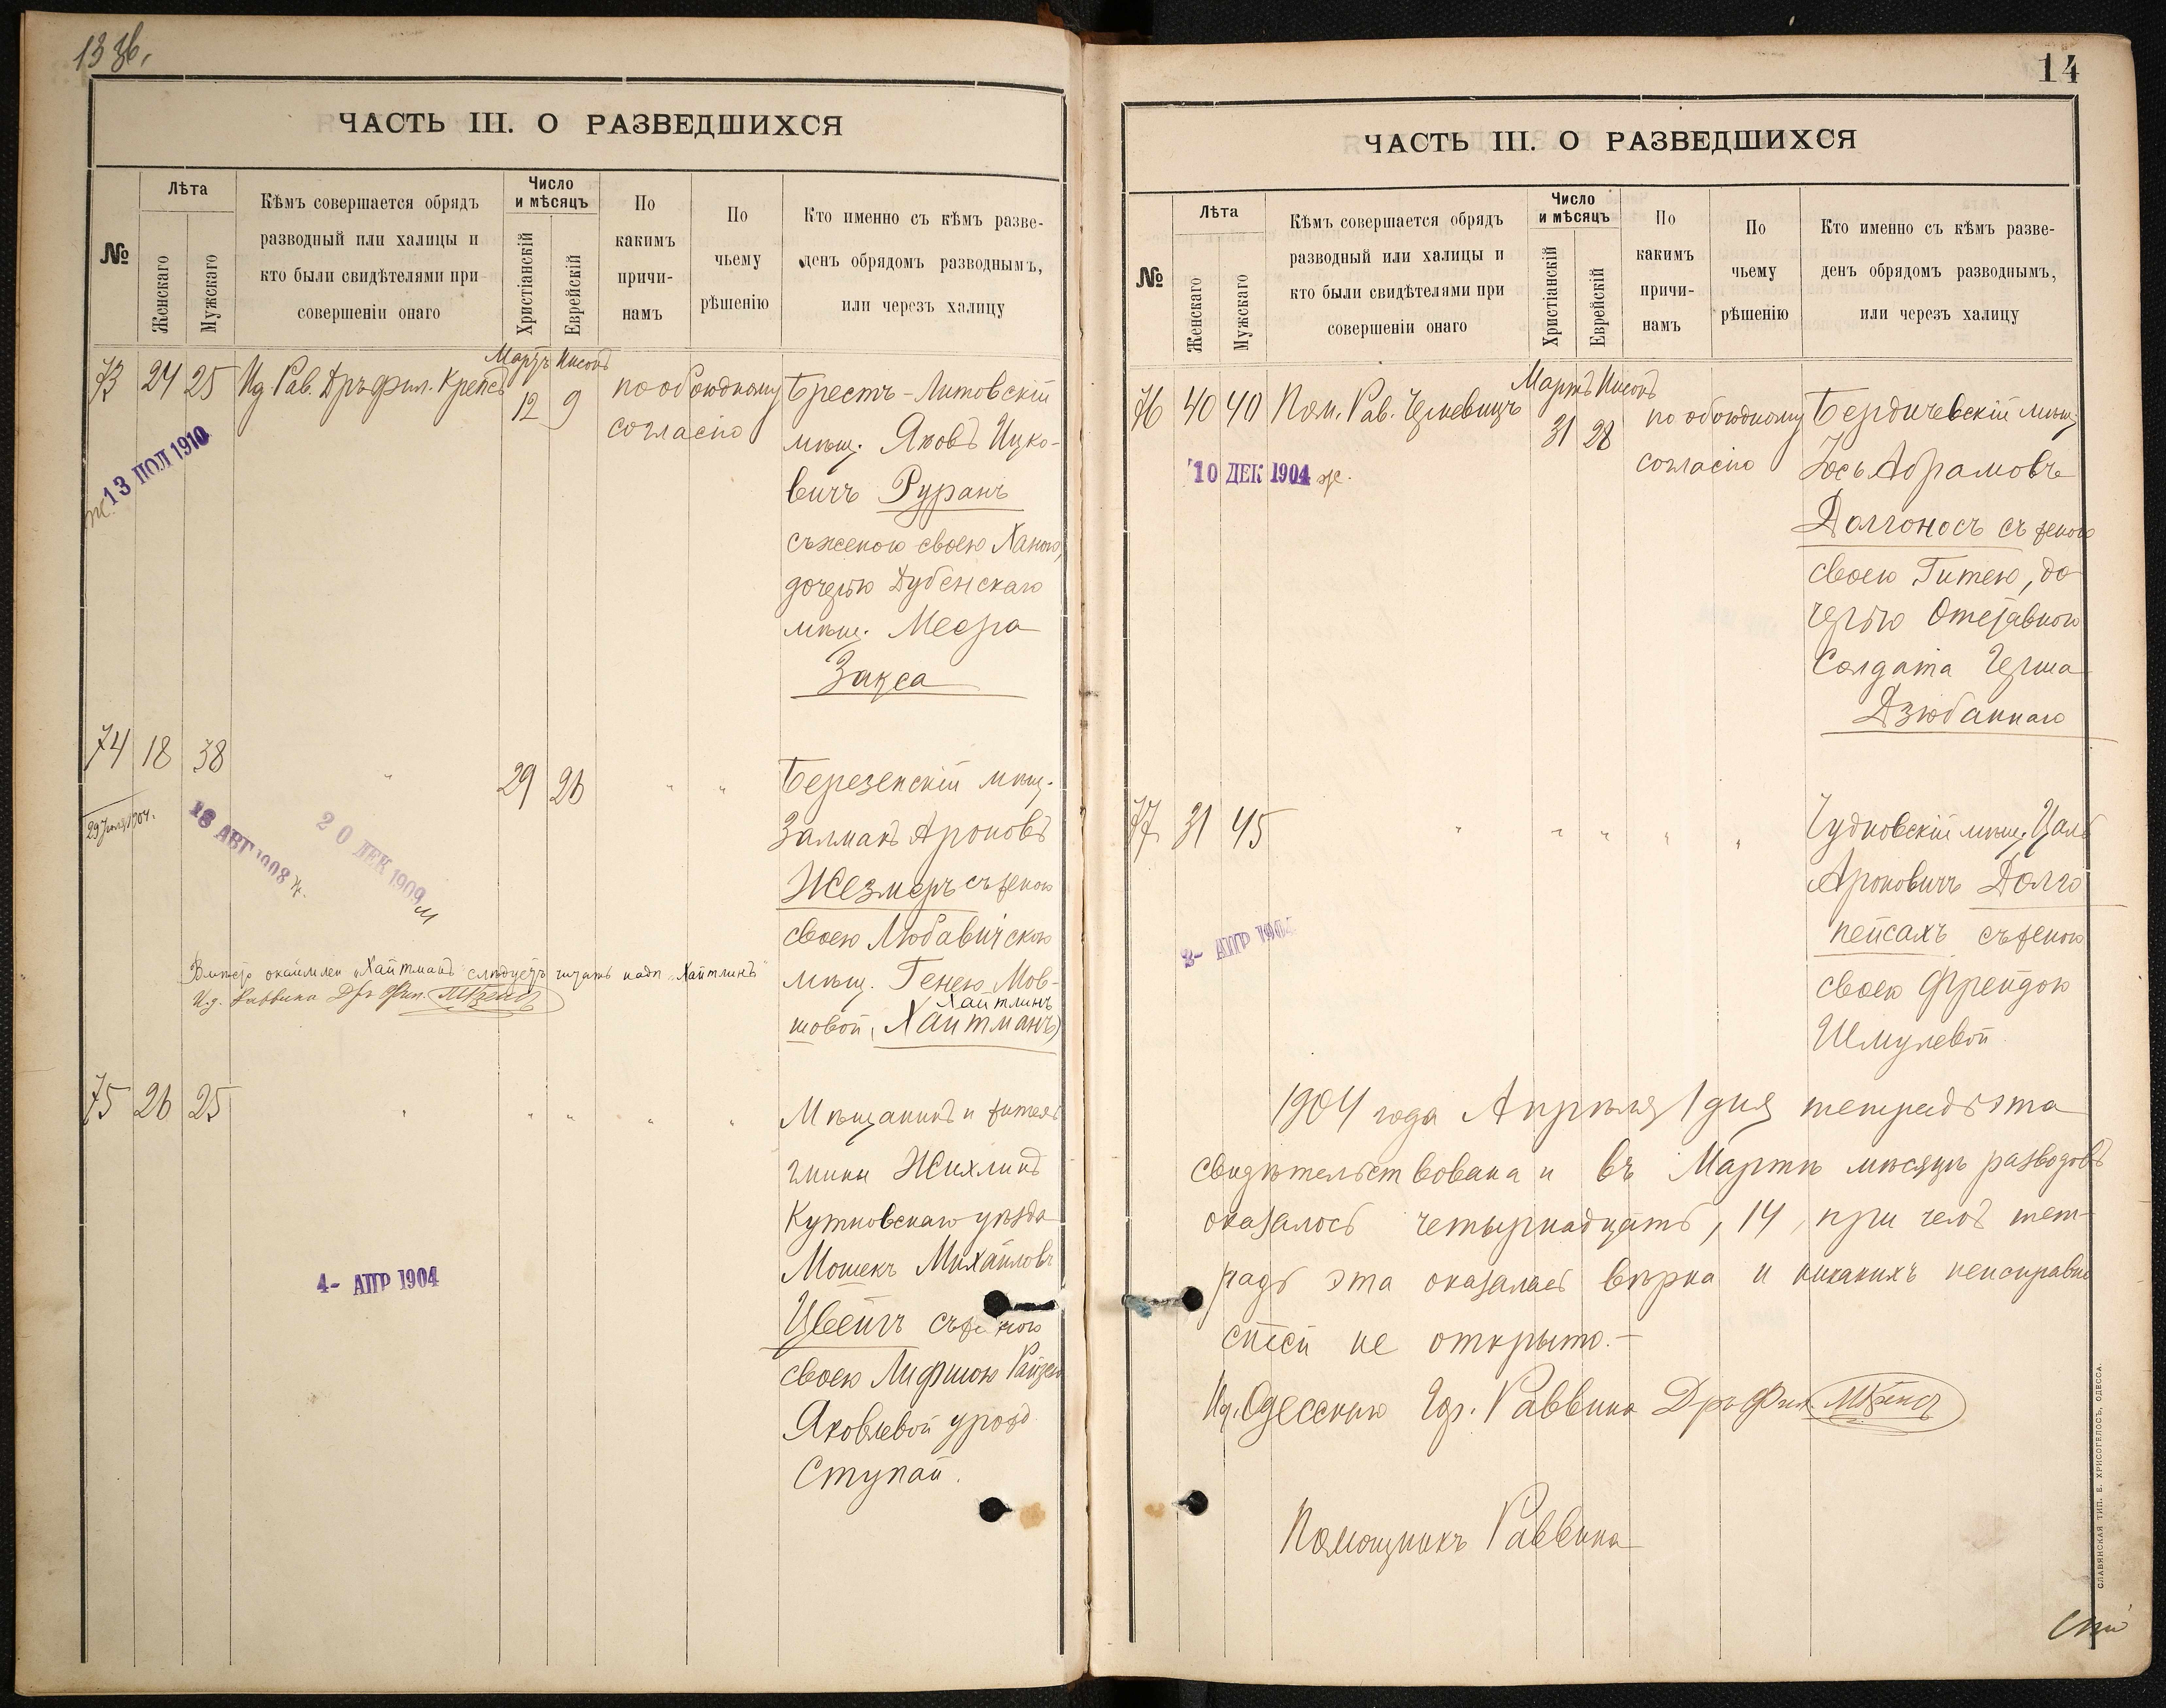 13 об.
ЧАСТЬ III. О РАЗВЕДШИХСЯ
№
Лѣта
Женскаго
Мужскаго
Кѣмъ совершается обрядъ
разводный или халицы и
кто были свидѣтелями при
совершеніи онаго
Число
и мѣсяцъ
Христіанскій
Еврейскій
По
какимъ
причи-
намъ
По
чьему
рѣшенію
Кто именно съ кѣмъ разве-
денъ обрядомъ разводнымъ,
или черезъ халицу
73 24 25 Ид Рав. Дръ Фил. Крепсъ
Мартъ Нисонъ
12 9
по обоюдному
согласію
13 ІЮЛ 1910
Брестъ-Литовскій
мѣщ. Яковъ Ицко-
вичъ Руранъ
съ женою своею Ханою,
дочерью Дубенскаго
мѣщ. Меера
Закса
74 18 38 " 29 26 " "
18 АВГ 1908
20 ДЕК 1909 м
Березенскій мѣщ.
Залманъ Ароновъ
Жезмеръ съ женою
своею Любавичскою
мѣщ. Генею Мов-
Хайтлинъ
шовой (Хайтманъ)
Вмѣсто фамиліи „Хайтманъ" слѣдуетъ читать надп. „Хайтлинъ"
И.д. Раввина Дръ Фил. МКрепсъ
75 26 25 " " " " "
4- АПР 1904
Мѣщанинъ и житель
гмины Жихлинъ
Кутновскаго уѣзда
Мошекъ Михайловъ
Цвейгъ съ женою
своею Лифшою Райзею
Яковлевой урожд
Ступай.
14
ЧАСТЬ III. О РАЗВЕДШИХСЯ
№
Лѣта
Женскаго
Мужскаго
Кѣмъ совершается обрядъ
разводный или халицы и
кто были свидѣтелями при
совершеніи онаго
Число
и мѣсяцъ
Христіанскій
Еврейскій
По
какимъ
причи-
намъ
По
чьему
рѣшенію
Кто именно съ кѣмъ разве-
денъ обрядомъ разводнымъ,
или черезъ халицу
76 40 40 Пом. Рав.
Мартъ Нисонъ
31 28
по обоюдному
согласію
10 ДЕК 1904 ж.
Бердичевскій мѣщ
Іось Абрамовъ
Долгоносъ съ женою
своею Гитею, до
черью Отставного
Солдата Герша
Дзюбаннаго
77 31 45 " " " " "
2- АПР 1904
Чудновскій мѣщ.
Ароновичъ Долго
пейсахъ съ женою
своею Фрейдою
Шмулевой
1904 года Апрѣля 1 дня тетрадь эта
свидѣтельствована и въ Мартѣ мѣсяцѣ разводовъ
оказалось четырнадцать, 14, при чемъ тет-
радь эта оказалась вѣрна и никакихъ неисправно
стей не открыто. —
Ид. Одесскаго Гор. Раввина Дръ Фил. МКрепсъ
Помощникъ Раввина
СЛАВЯНСКАЯ ТИП. Е. ХРИСОГЕЛОСЪ, ОДЕССА.